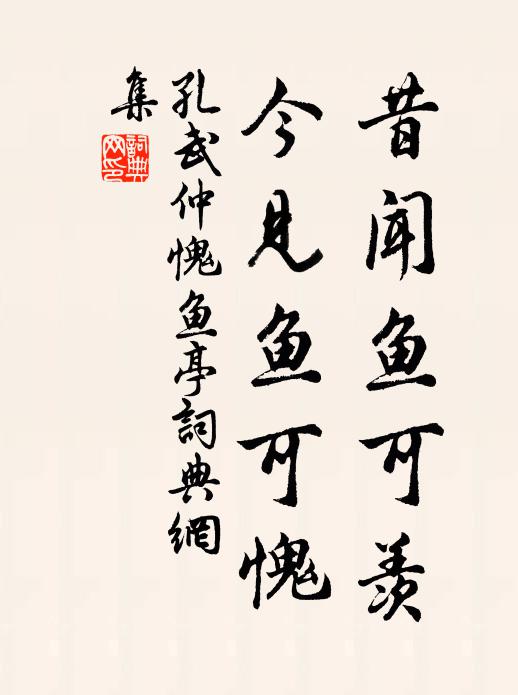 昔闻鱼可羡
今见鱼可愧
孔武仲愧鱼亭詞典網
集
詞典網印